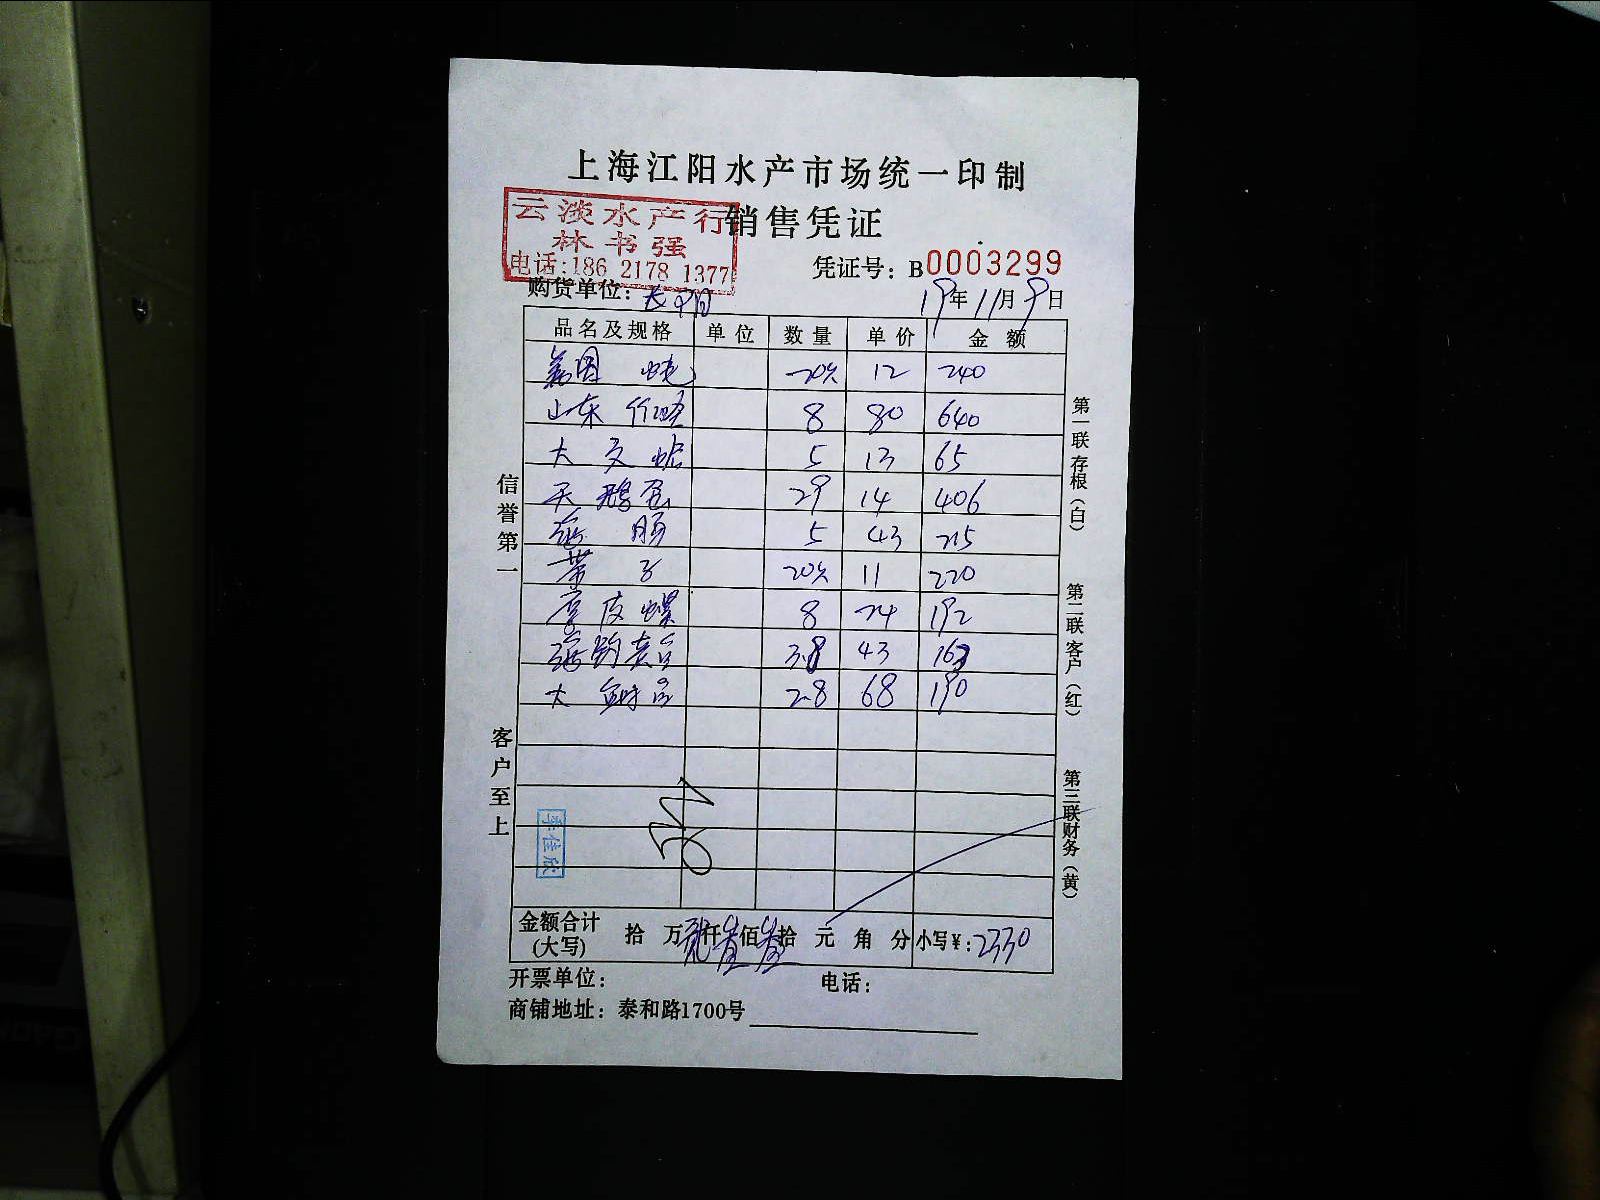 上海江阳水产市场统一印制
销售凭证
云淡水产行
林书强
电话:186 2178 1377
凭证号：B0003299
购货单位：
19年11月9日
品名及规格 单位 数量 单价 金额
20 12 240
山东 8 80 640
大文蛤 5 13 65
天鹅蛋 29 14 406
5 43 215
带子 20 11 220
厚皮螺 8 24 192
3.8 43 163
大 2.8 68 190
信誉第一
客户至上
第一联 存根（白）
第二联 客户（红）
第三联 财务（黄）
李佳欣
金额合计(大写) 拾 万 仟 佰 拾 元 角 分 小写¥：2330
开票单位： 电话：
商铺地址：泰和路1700号